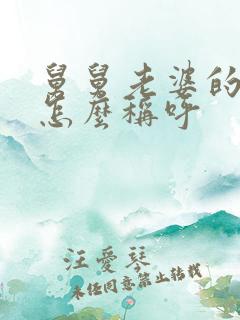 舅舅老婆的
怎麼稱呼
汪愛琴
未经同意禁止转载